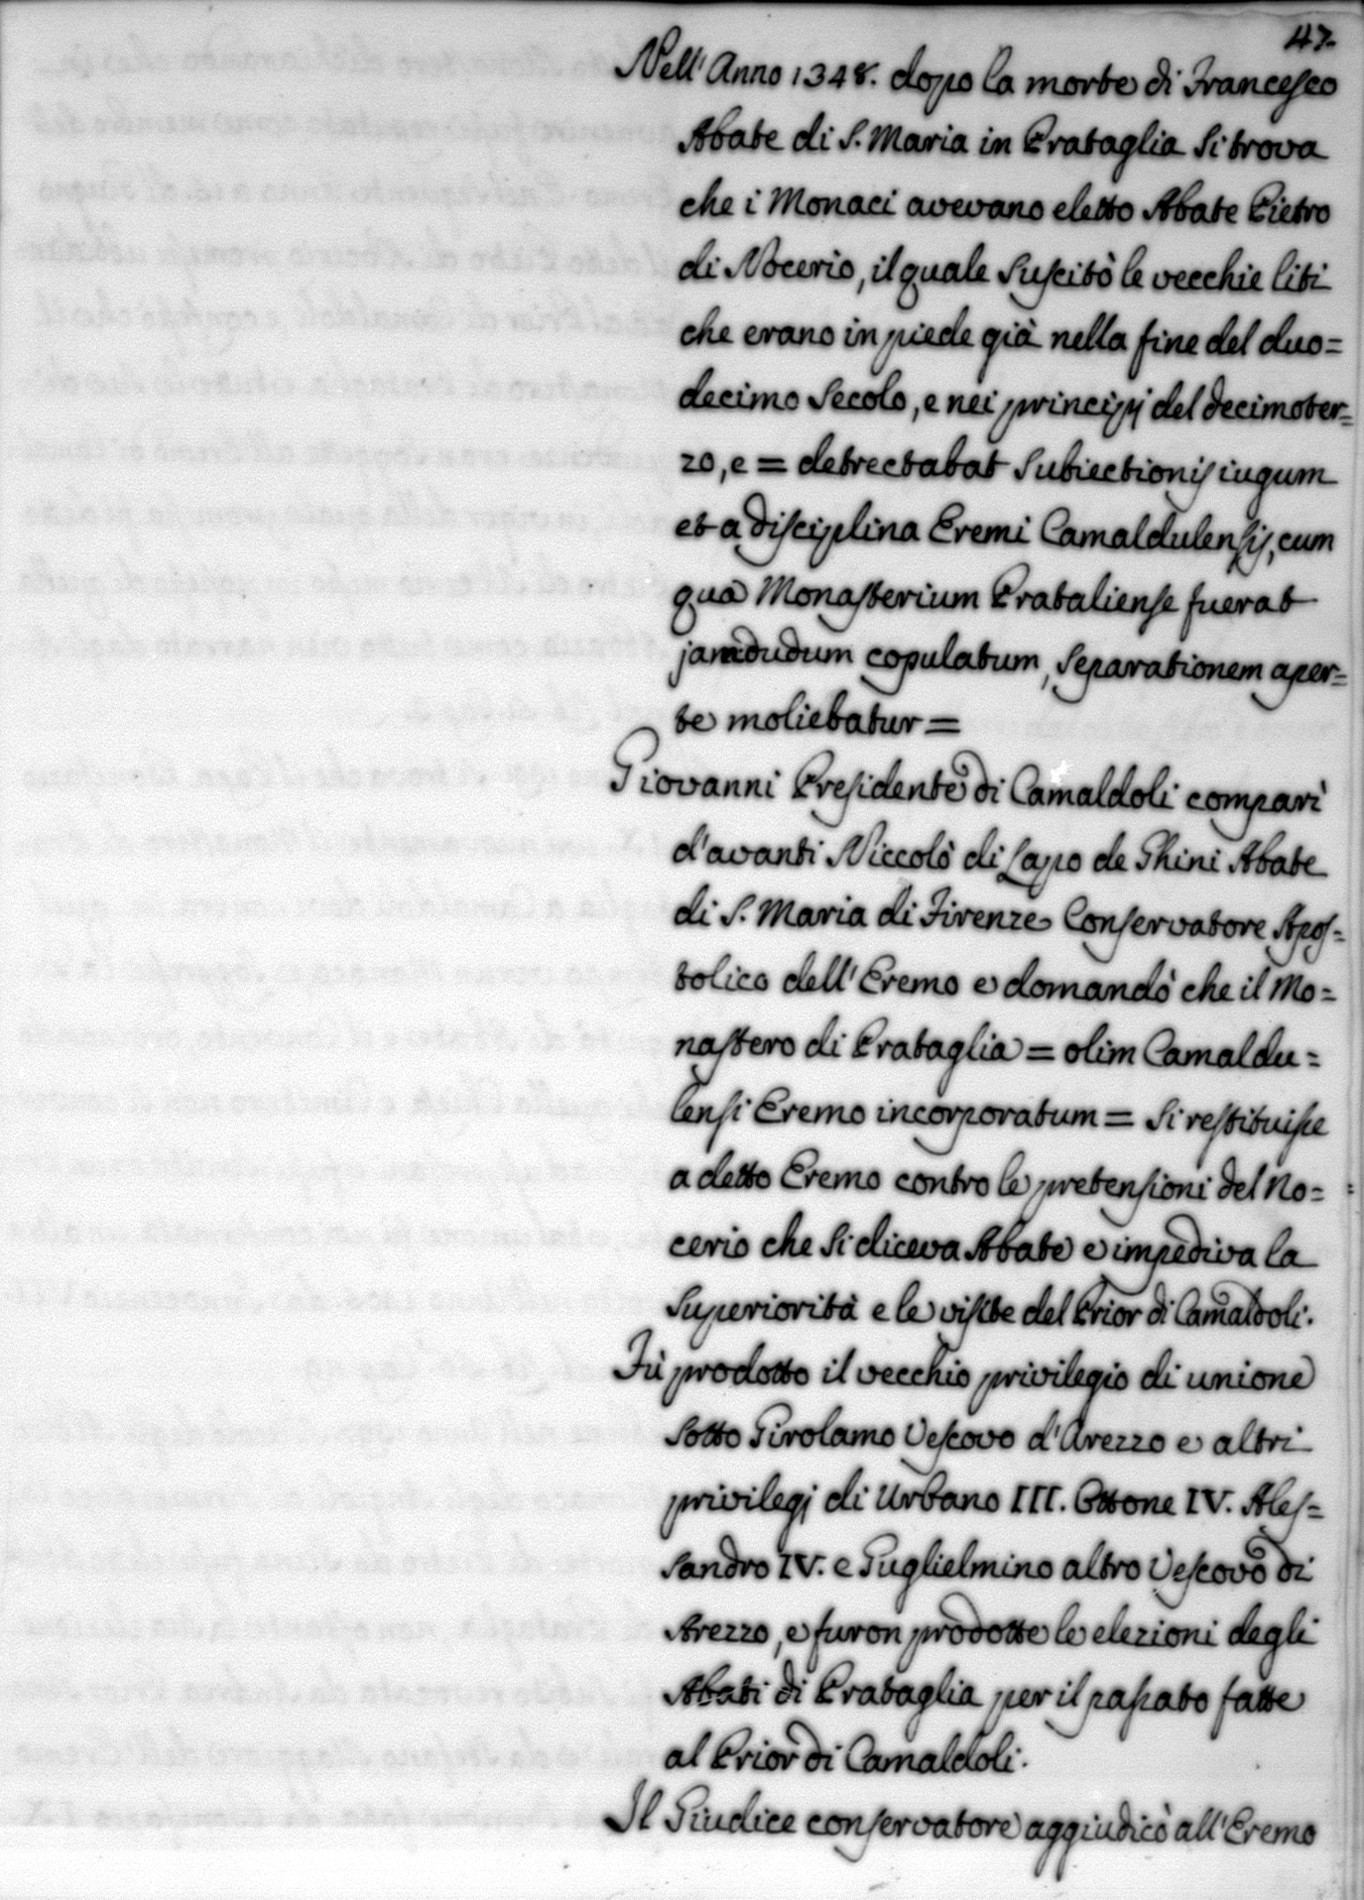 47.
Nell'Anno 1348. dopo la morte di Francesco
Abate di S. Maria in Prataglia si trova
che i Monaci avevano eletto Abate Pietro
di Nocerio, il quale suscitò le vecchie liti
che erano in piede già nella fine del duo=
decimo secolo, e nei principj del decimoter=
zo, e = detrectabat subiectionis iugum
et a disciplina Eremi Camaldulensis, cum
qua Monasterium Prataliense fuerat
jamdudum copulatum, separationem aper=
te moliebatur =
Giovanni Presidente di Camaldoli comparì
d'avanti Niccolò di Lapo de Ghini Abate
di S. Maria di Firenze Conservatore Apos=
tolico dell'Eremo e domandò che il Mo=
nastero di Prataglia = olim Camaldu=
lensi Eremo incorporatum = si restituisse
a detto Eremo contro le pretensioni del No=
cerio che si diceva Abate e impediva la
superiorità e le visite del Prior di Camaldoli.
Fù prodotto il vecchio privilegio di unione
sotto Girolamo Vescovo d'Arezzo e altri
privilegj di Urbano III. Ottone IV. Ales=
sandro IV. e Guglielmino altro Vescovo di
Arezzo, e furon prodotte le elezioni degli
Abati di Prataglia per il passato fatte
al Prior di Camaldoli.
Il Giudice conservatore aggiudicò all'Eremo